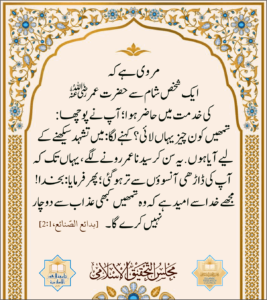 مروی ہے کہ
ایک شخص شام سے حضرت عمر رضی اللہ عنہ
کی خدمت میں حاضر ہوا؛ آپ نے پوچھا:
تمھیں کون چیز یہاں لائی؟ کہنے لگا: میں تشہد سیکھنے کے
لیے آیا ہوں۔ یہ سن کر سیدنا عمر رونے لگے، یہاں تک کہ
آپ کی ڈاڑھی آنسوؤں سے تر ہو گئی؛ پھر فرمایا: بخدا!
مجھے خدا سے امید ہے کہ وہ تمھیں کبھی عذاب سے دوچار
نہیں کرے گا۔ [بدائع الصنائع، 2:1]
مجلس التحقیق الاسلامی